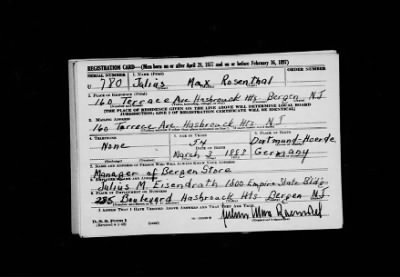 REGISTRATION CARD—(Men born on or after April 28, 1877 and on or before February 16, 1897)
SERIAL NUMBER 1. NAME (Print) ORDER NUMBER
U 780 Julius Max Rosenthal
2. PLACE OF RESIDENCE (Print)
160 Terrace Ave. Hasbrouck Hts. Bergen N.J
[THE PLACE OF RESIDENCE GIVEN ON THE LINE ABOVE WILL DETERMINE LOCAL BOARD
JURISDICTION; LINE 2 OF REGISTRATION CERTIFICATE WILL BE IDENTICAL]
3. MAILING ADDRESS
160 Terrace Ave. Hasbrouck Hts. N.J
4. TELEPHONE 5. AGE IN YEARS 6. PLACE OF BIRTH
None 54 Dortmund-Hoerde
DATE OF BIRTH
March 2 1888 Germany
7. NAME AND ADDRESS OF PERSON WHO WILL ALWAYS KNOW YOUR ADDRESS
Manager of Bergen Store
8. EMPLOYER'S NAME AND ADDRESS
Julius M. Eisendrath 1600 Empire State Bldg
9. PLACE OF EMPLOYMENT OR BUSINESS
Boulevard Hasbrouck Hts Bergen N.J
I AFFIRM THAT I HAVE VERIFIED ABOVE ANSWERS AND THAT THEY ARE TRUE.
D. S. S. Form 1
Julius Max Rosenthal